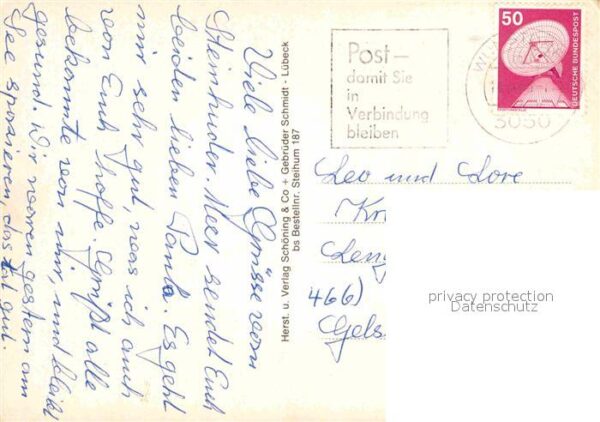 Viele liebe Grüsse vom
Steinhuder Meer sendet Euch
beiden lieben Paula. Es geht
mir sehr gut, was ich auch
von Euch hoffe. Grüßt alle
bekannte von mir, und bleibt
gesund. Wir waren gestern am
See spazieren, das tut gut.
Herst. u. Verlag Schöning & Co + Gebrüder Schmidt · Lübeck
bs Bestellnr. Steihum 187
Post —
damit Sie
in
Verbindung
bleiben
3050
50
DEUTSCHE BUNDESPOST
Leo und Lore
466)
Gels
privacy protection
Datenschutz